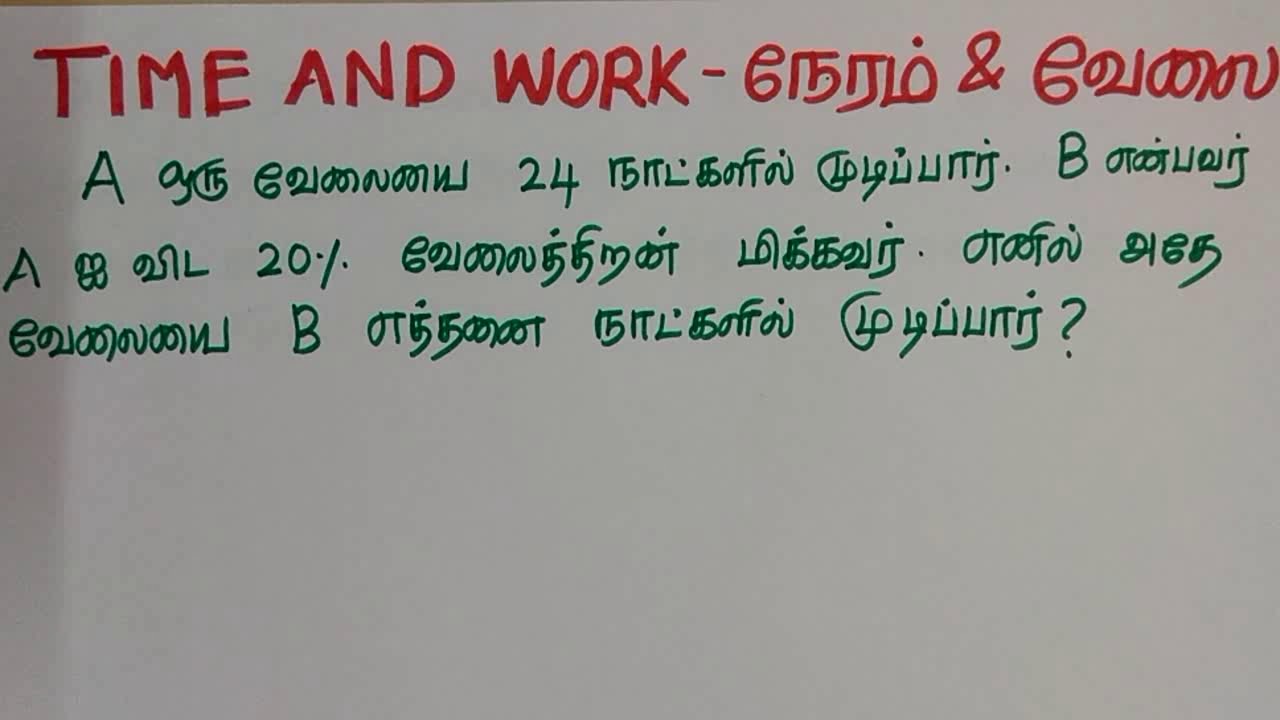 TIME AND WORK - நேரம் & வேலை
A ஒரு வேலையை 24 நாட்களில் முடிப்பார். B என்பவர்
A ஐ விட 20% வேலைத்திறன் மிக்கவர். எனில் அதே
வேலையை B எத்தனை நாட்களில் முடிப்பார்?